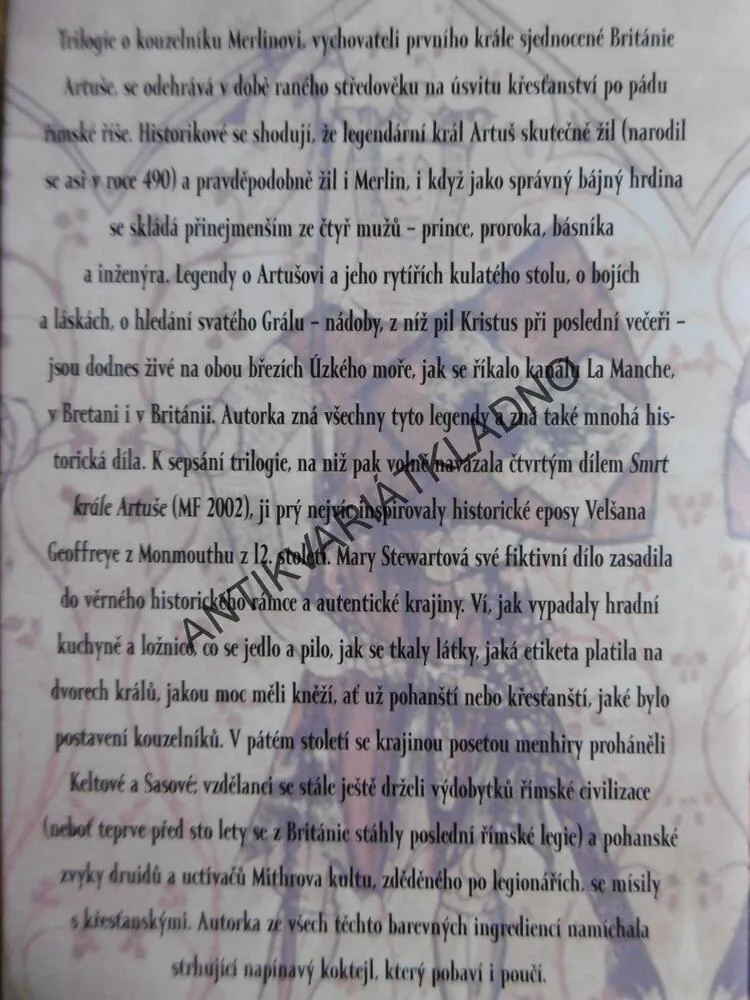 Trilogie o kouzelníku Merlinovi, vychovateli prvního krále sjednocené Británie
Artuše, se odehrává v době raného středověku na úsvitu křesťanství po pádu
římské říše. Historikové se shodují, že legendární král Artuš skutečně žil (narodil
se asi v roce 490) a pravděpodobně žil i Merlin, i když jako správný bájný hrdina
se skládá přinejmenším ze čtyř mužů – prince, proroka, básníka
a inženýra. Legendy o Artušovi a jeho rytířích kulatého stolu, o bojích
a láskách, o hledání svatého Grálu – nádoby, z níž pil Kristus při poslední večeři –
jsou dodnes živé na obou březích Úzkého moře, jak se říkalo kanálu La Manche,
v Bretani i v Británii. Autorka zná všechny tyto legendy a zná také mnohá his-
torická díla. K sepsání trilogie, na niž pak volně navázala čtvrtým dílem Smrt
krále Artuše (MF 2002), ji prý nejvíc inspirovaly historické eposy Velšana
Geoffreye z Monmouthu z 12. století. Mary Stewartová své fiktivní dílo zasadila
do věrného historického rámce a autentické krajiny. Ví, jak vypadaly hradní
kuchyně a ložnice, co se jedlo a pilo, jak se tkaly látky, jaká etiketa platila na
dvorech králů, jakou moc měli kněží, ať už pohanští nebo křesťanští, jaké bylo
postavení kouzelníků. V pátém století se krajinou posetou menhiry proháněli
Keltové a Sasové; vzdělanci se stále ještě drželi výdobytků římské civilizace
(neboť teprve před sto lety se z Británie stáhly poslední římské legie) a pohanské
zvyky druidů a uctívačů Mithrova kultu, zděděného po legionářích, se mísily
s křesťanskými. Autorka ze všech těchto barevných ingrediencí namíchala
strhující napínavý koktejl, který pobaví i poučí.
ANTIKVARIÁT KLADNO